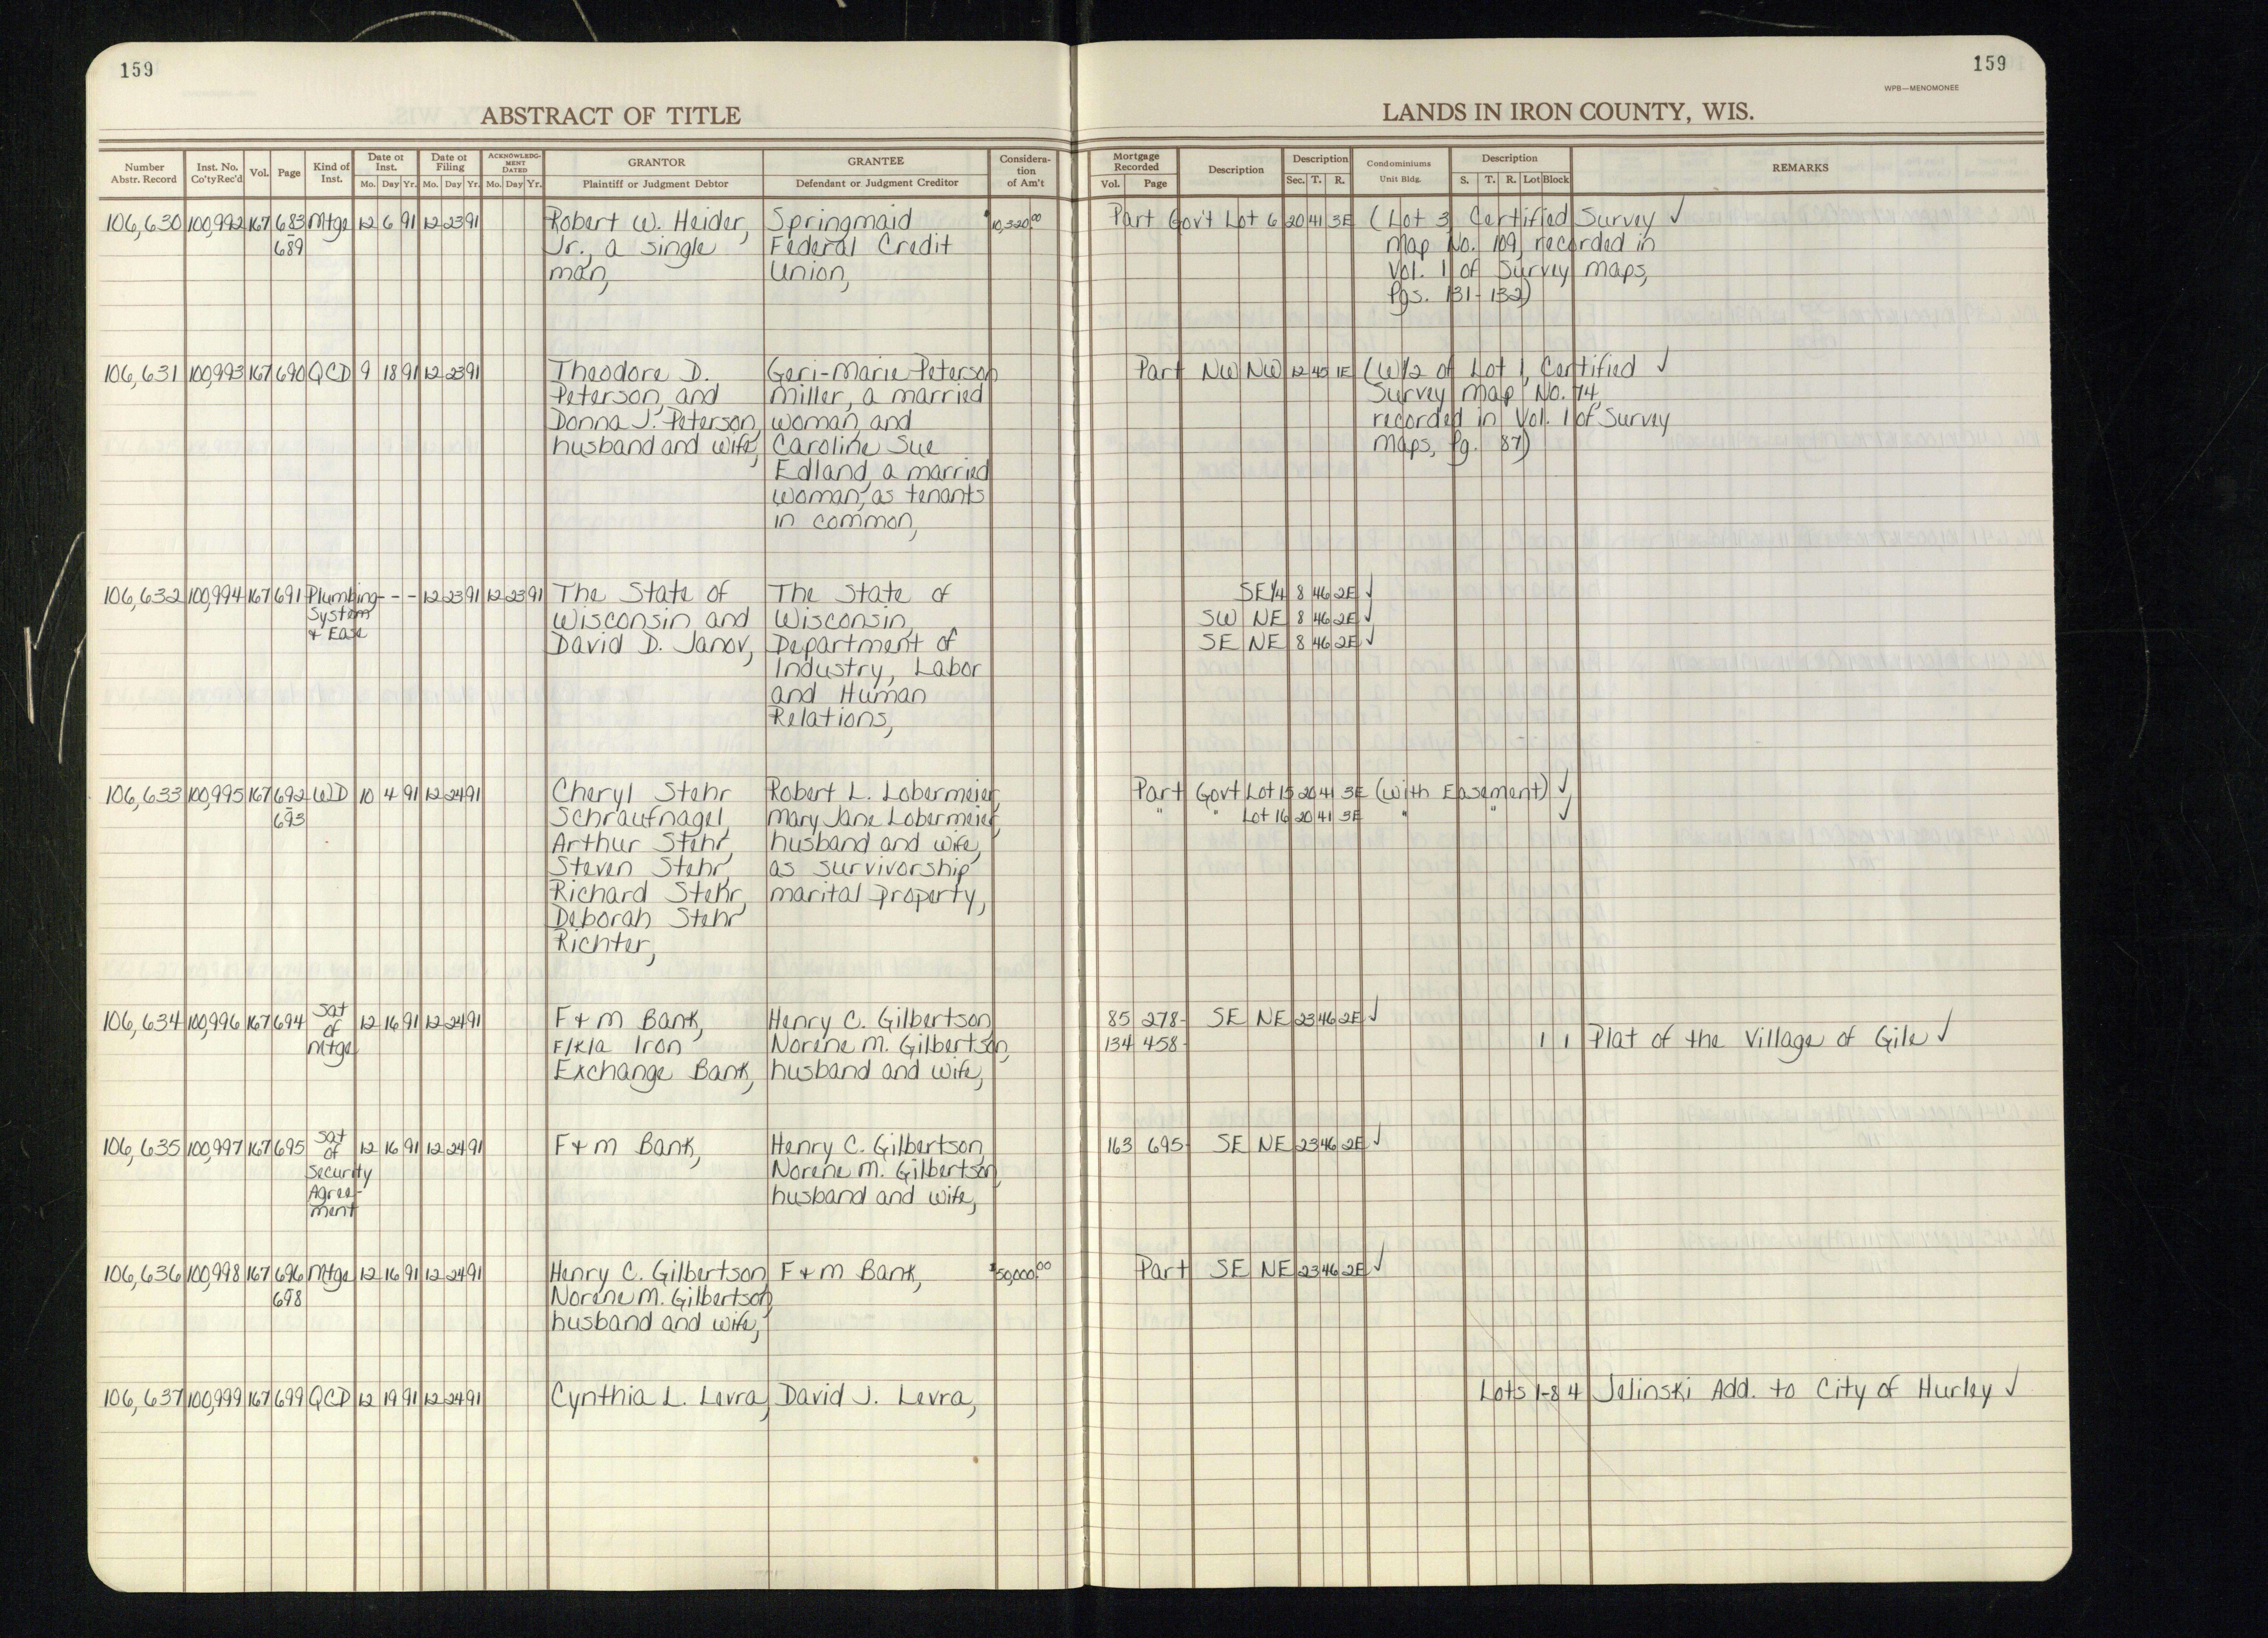 159
159
WPB—MENOMONEE
ABSTRACT OF TITLE
LANDS IN IRON COUNTY, WIS.
Number Abstr. Record Inst. No. Co'ty Rec'd Vol. Page Kind of Inst. Date of Inst. Mo. Day Yr. Date of Filing Mo. Day Yr. ACKNOWLEDGMENT DATED Mo. Day Yr. GRANTOR Plaintiff or Judgment Debtor GRANTEE Defendant or Judgment Creditor Consideration of Am't Mortgage Recorded Vol. Page Description Description Sec. T. R. Condominiums Unit Bldg. Description S. T. R. Lot Block REMARKS
106,630 100,992 167 683 Mtge 12 6 91 12 23 91 Robert W. Heider, Springmaid $10,320.00 Part Gov't Lot 6 20 41 3E (Lot 3 Certified Survey ✓
689 Jr., a single Federal Credit Map No. 109, recorded in
man, Union, Vol. 1 of Survey Maps,
Pgs. 131-132)
106,631 100,993 167 690 QCD 9 18 91 12 23 91 Theodore D. Geri-Marie Peterson Part NW NW 12 45 1E (W1/2 of Lot 1, Certified ✓
Peterson, and Miller, a married Survey Map No. 74,
Donna J. Peterson, woman, and recorded in Vol. 1 of Survey
husband and wife, Caroline Sue Maps, Pg. 87)
Edland, a married
woman, as tenants
in common,
106,632 100,994 167 691 Plumbing - - - 12 23 91 12 23 91 The State of The State of SE1/4 8 46 2E ✓
System Wisconsin and Wisconsin, SW NE 8 46 2E ✓
& Ease David D. Janov, Department of SE NE 8 46 2E ✓
Industry, Labor
and Human
Relations,
106,633 100,995 167 692 WD 10 4 91 12 24 91 Cheryl Stehr Robert L. Lobermeier, Part Govt Lot 15 20 41 3E (with Easement) ✓
693 Schraufnagel, Mary Jane Lobermeier, " " Lot 16 20 41 3E " " ✓
Arthur Stehr, husband and wife,
Steven Stehr, as survivorship
Richard Stehr, marital property,
Deborah Stehr
Richter,
106,634 100,996 167 694 Sat of Mtge 12 16 91 12 24 91 F & M Bank, Henry C. Gilbertson, 85 278- SE NE 23 46 2E ✓
F/K/a Iron Norene M. Gilbertson, 134 458- 1 1 Plat of the Village of Gile ✓
Exchange Bank, husband and wife,
106,635 100,997 167 695 Sat of Security Agree-ment 12 16 91 12 24 91 F & M Bank, Henry C. Gilbertson, 163 695- SE NE 23 46 2E ✓
Norene M. Gilbertson,
husband and wife,
106,636 100,998 167 696 Mtge 12 16 91 12 24 91 Henry C. Gilbertson, F & M Bank, $50,000.00 Part SE NE 23 46 2E ✓
698 Norene M. Gilbertson,
husband and wife,
106,637 100,999 167 699 QCD 12 19 91 12 24 91 Cynthia L. Levra, David J. Levra, Lots 1-8 4 Jelinski Add. to City of Hurley ✓